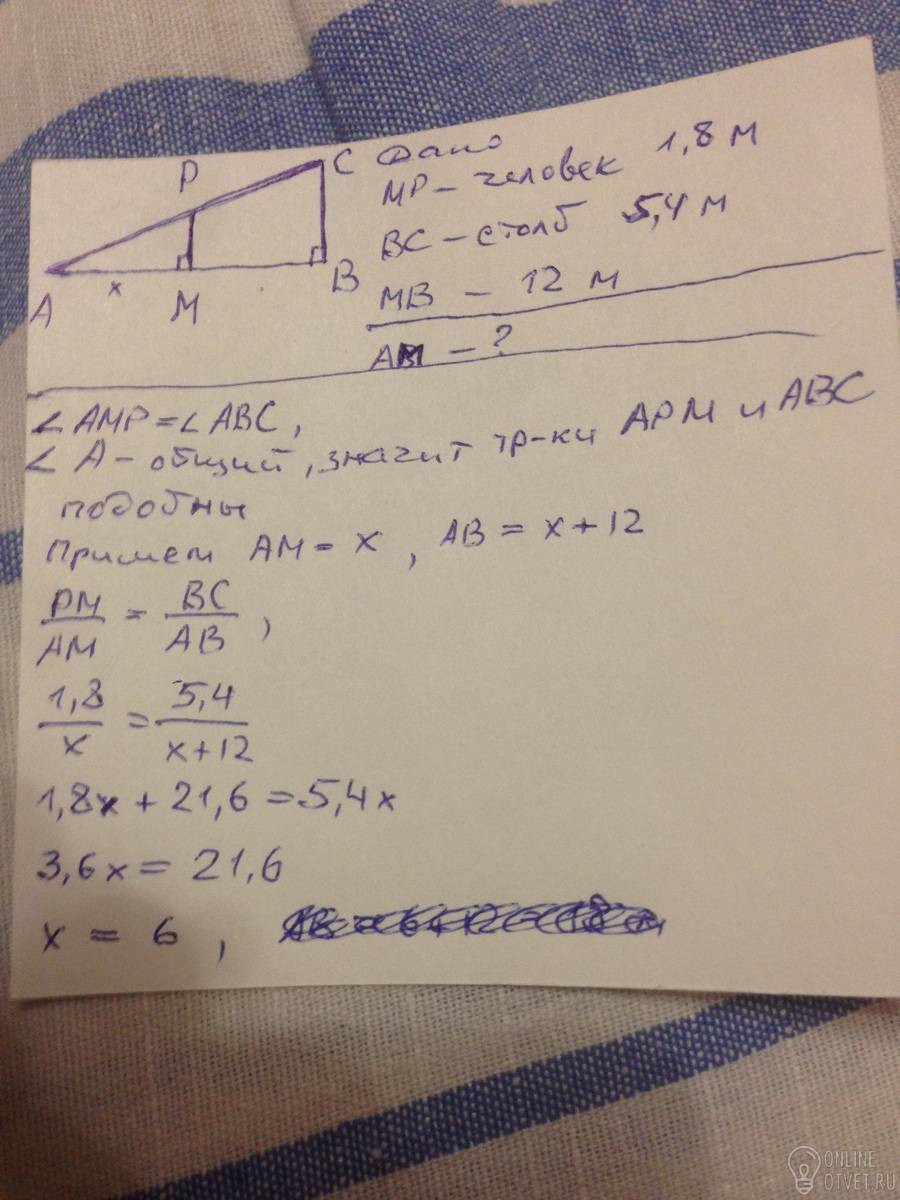 P
C
A
x
M
B
Дано
MP - человек 1,8 м
BC - столб 5,4 м
MB - 12 м
AM - ?
∠AMP = ∠ABC,
∠A - общий, значит тр-ки APM и ABC
подобны
Примем AM = x, AB = x + 12
PM/AM = BC/AB,
1,8/x = 5,4/x+12
1,8x + 21,6 = 5,4x
3,6x = 21,6
x = 6,
ONLINE
OTVET.RU